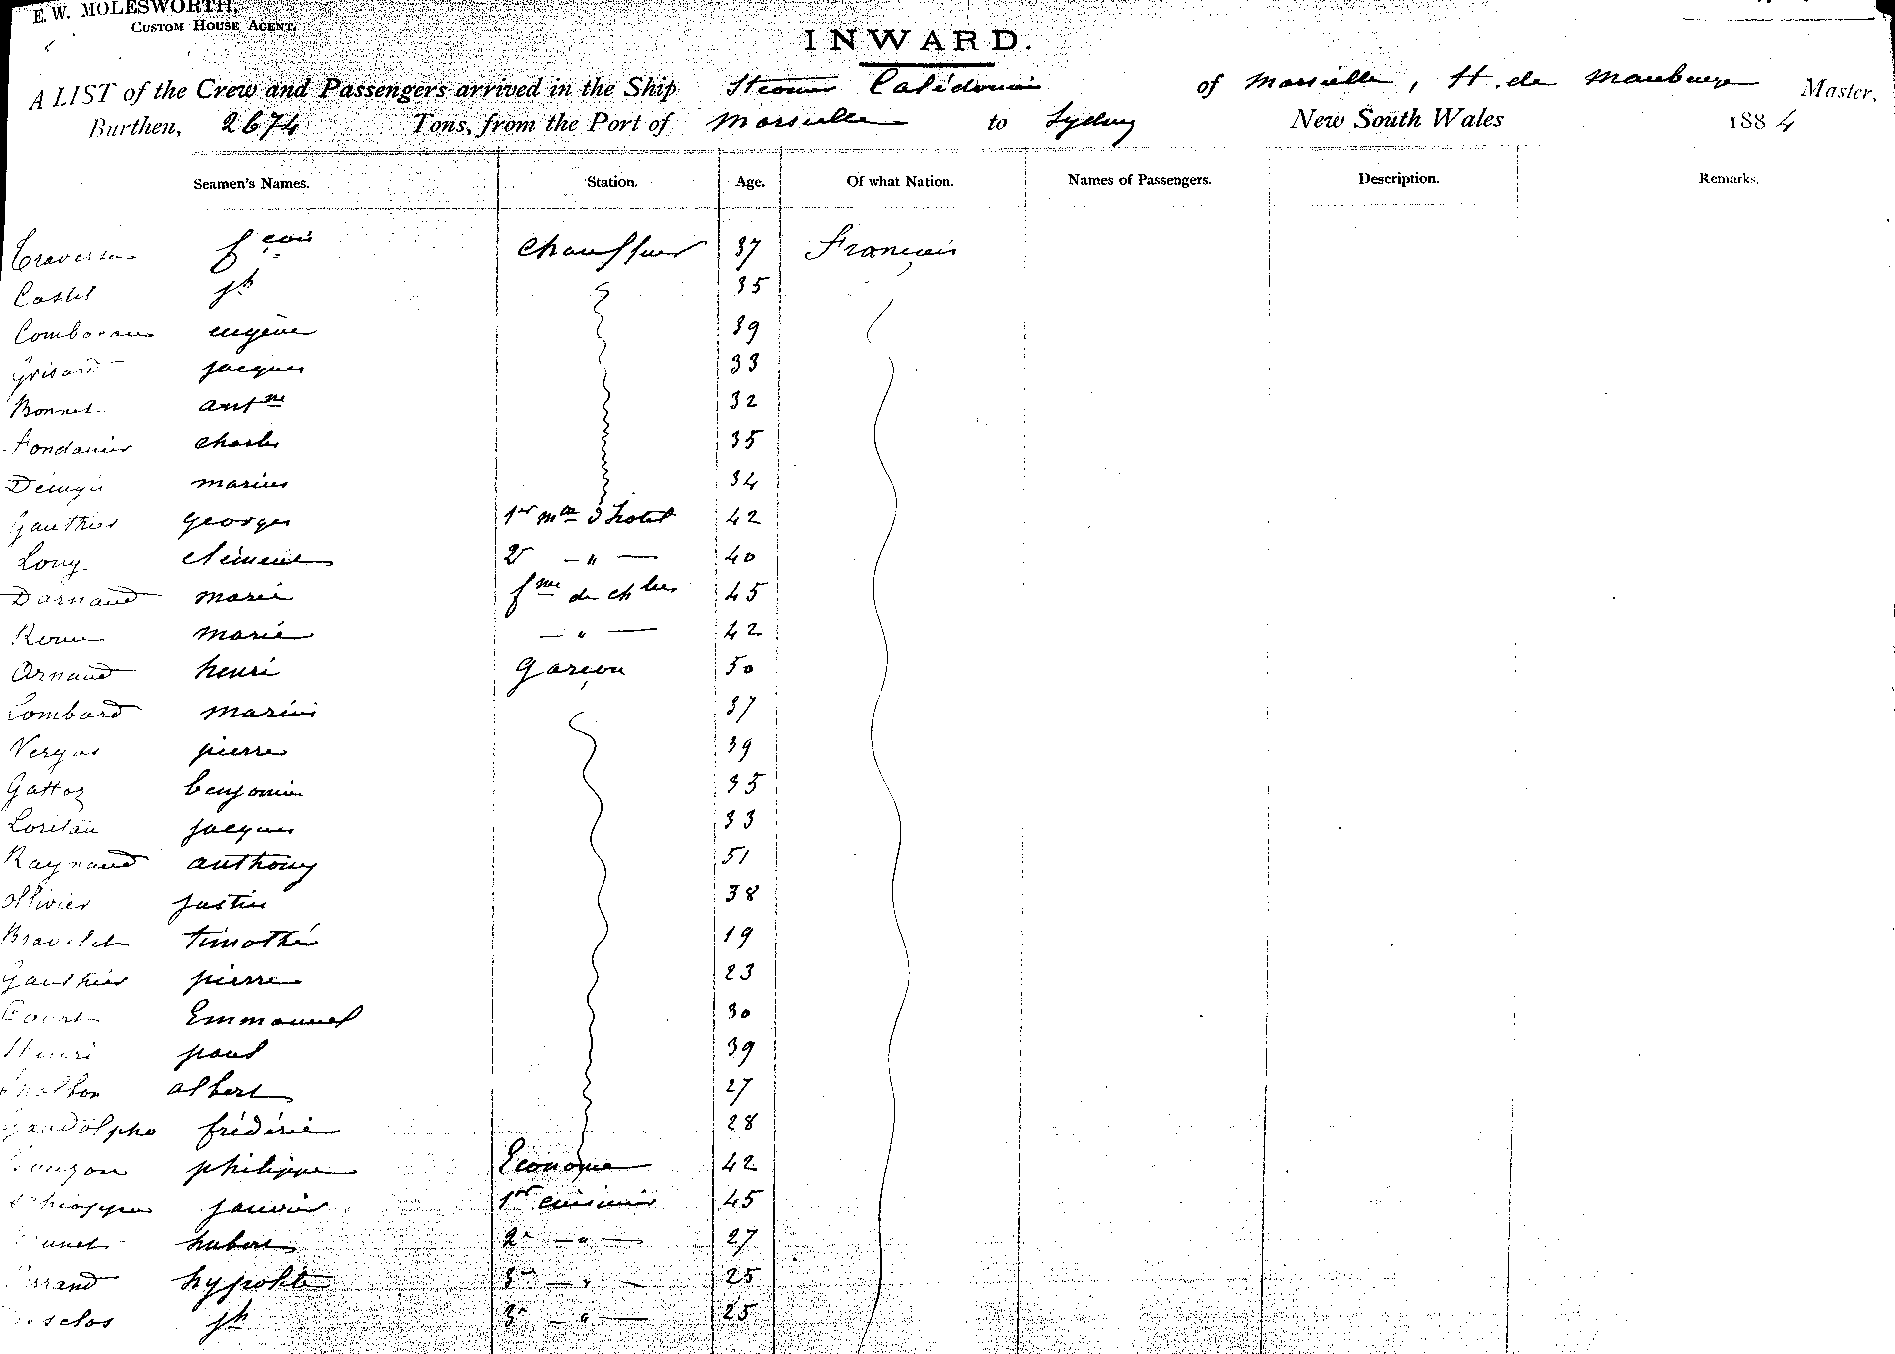 E. W. MOLESWORTH,
CUSTOM HOUSE AGENT.
INWARD.
A LIST of the Crew and Passengers arrived in the Ship Steamer Calédonien of Marseille, H. de Maubeuge Master,
Burthen, 2674 Tons, from the Port of Marseille to Sydney New South Wales 1884
Seamen's Names. Station. Age. Of what Nation. Names of Passengers. Description. Remarks.
fçois chauffeur 37 Français
Castel jh 35
eugène 39
Grisard jacques 33
Bonnet antne 32
charles 35
marius 34
Gauthier georges 1er mtre d'hotel 42
Long clément 2e — " — 40
Darnaud marie fme de chbres 45
marie — " — 42
Arnaud henri Garçon 50
Lombard marius 37
Vergas pierre 39
Gattoz benjamin 35
jacques 33
Raynaud anthony 51
Ollivier justin 38
timothé 19
Gauthier pierre 23
Court Emmanuel 30
Henri paul 39
albert 27
Gandolphe frédéric 28
philippe Econome 42
janvier 1er cuisinier 45
hubert 2e — " — 27
hypolite 3e — " — 25
jh 3e — " — 25